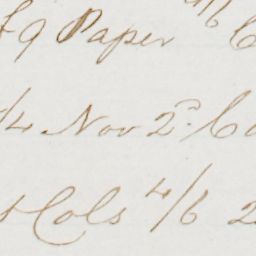 9 Paper 4/6
/4 Nov 2d. Co
Cols 4/6 2